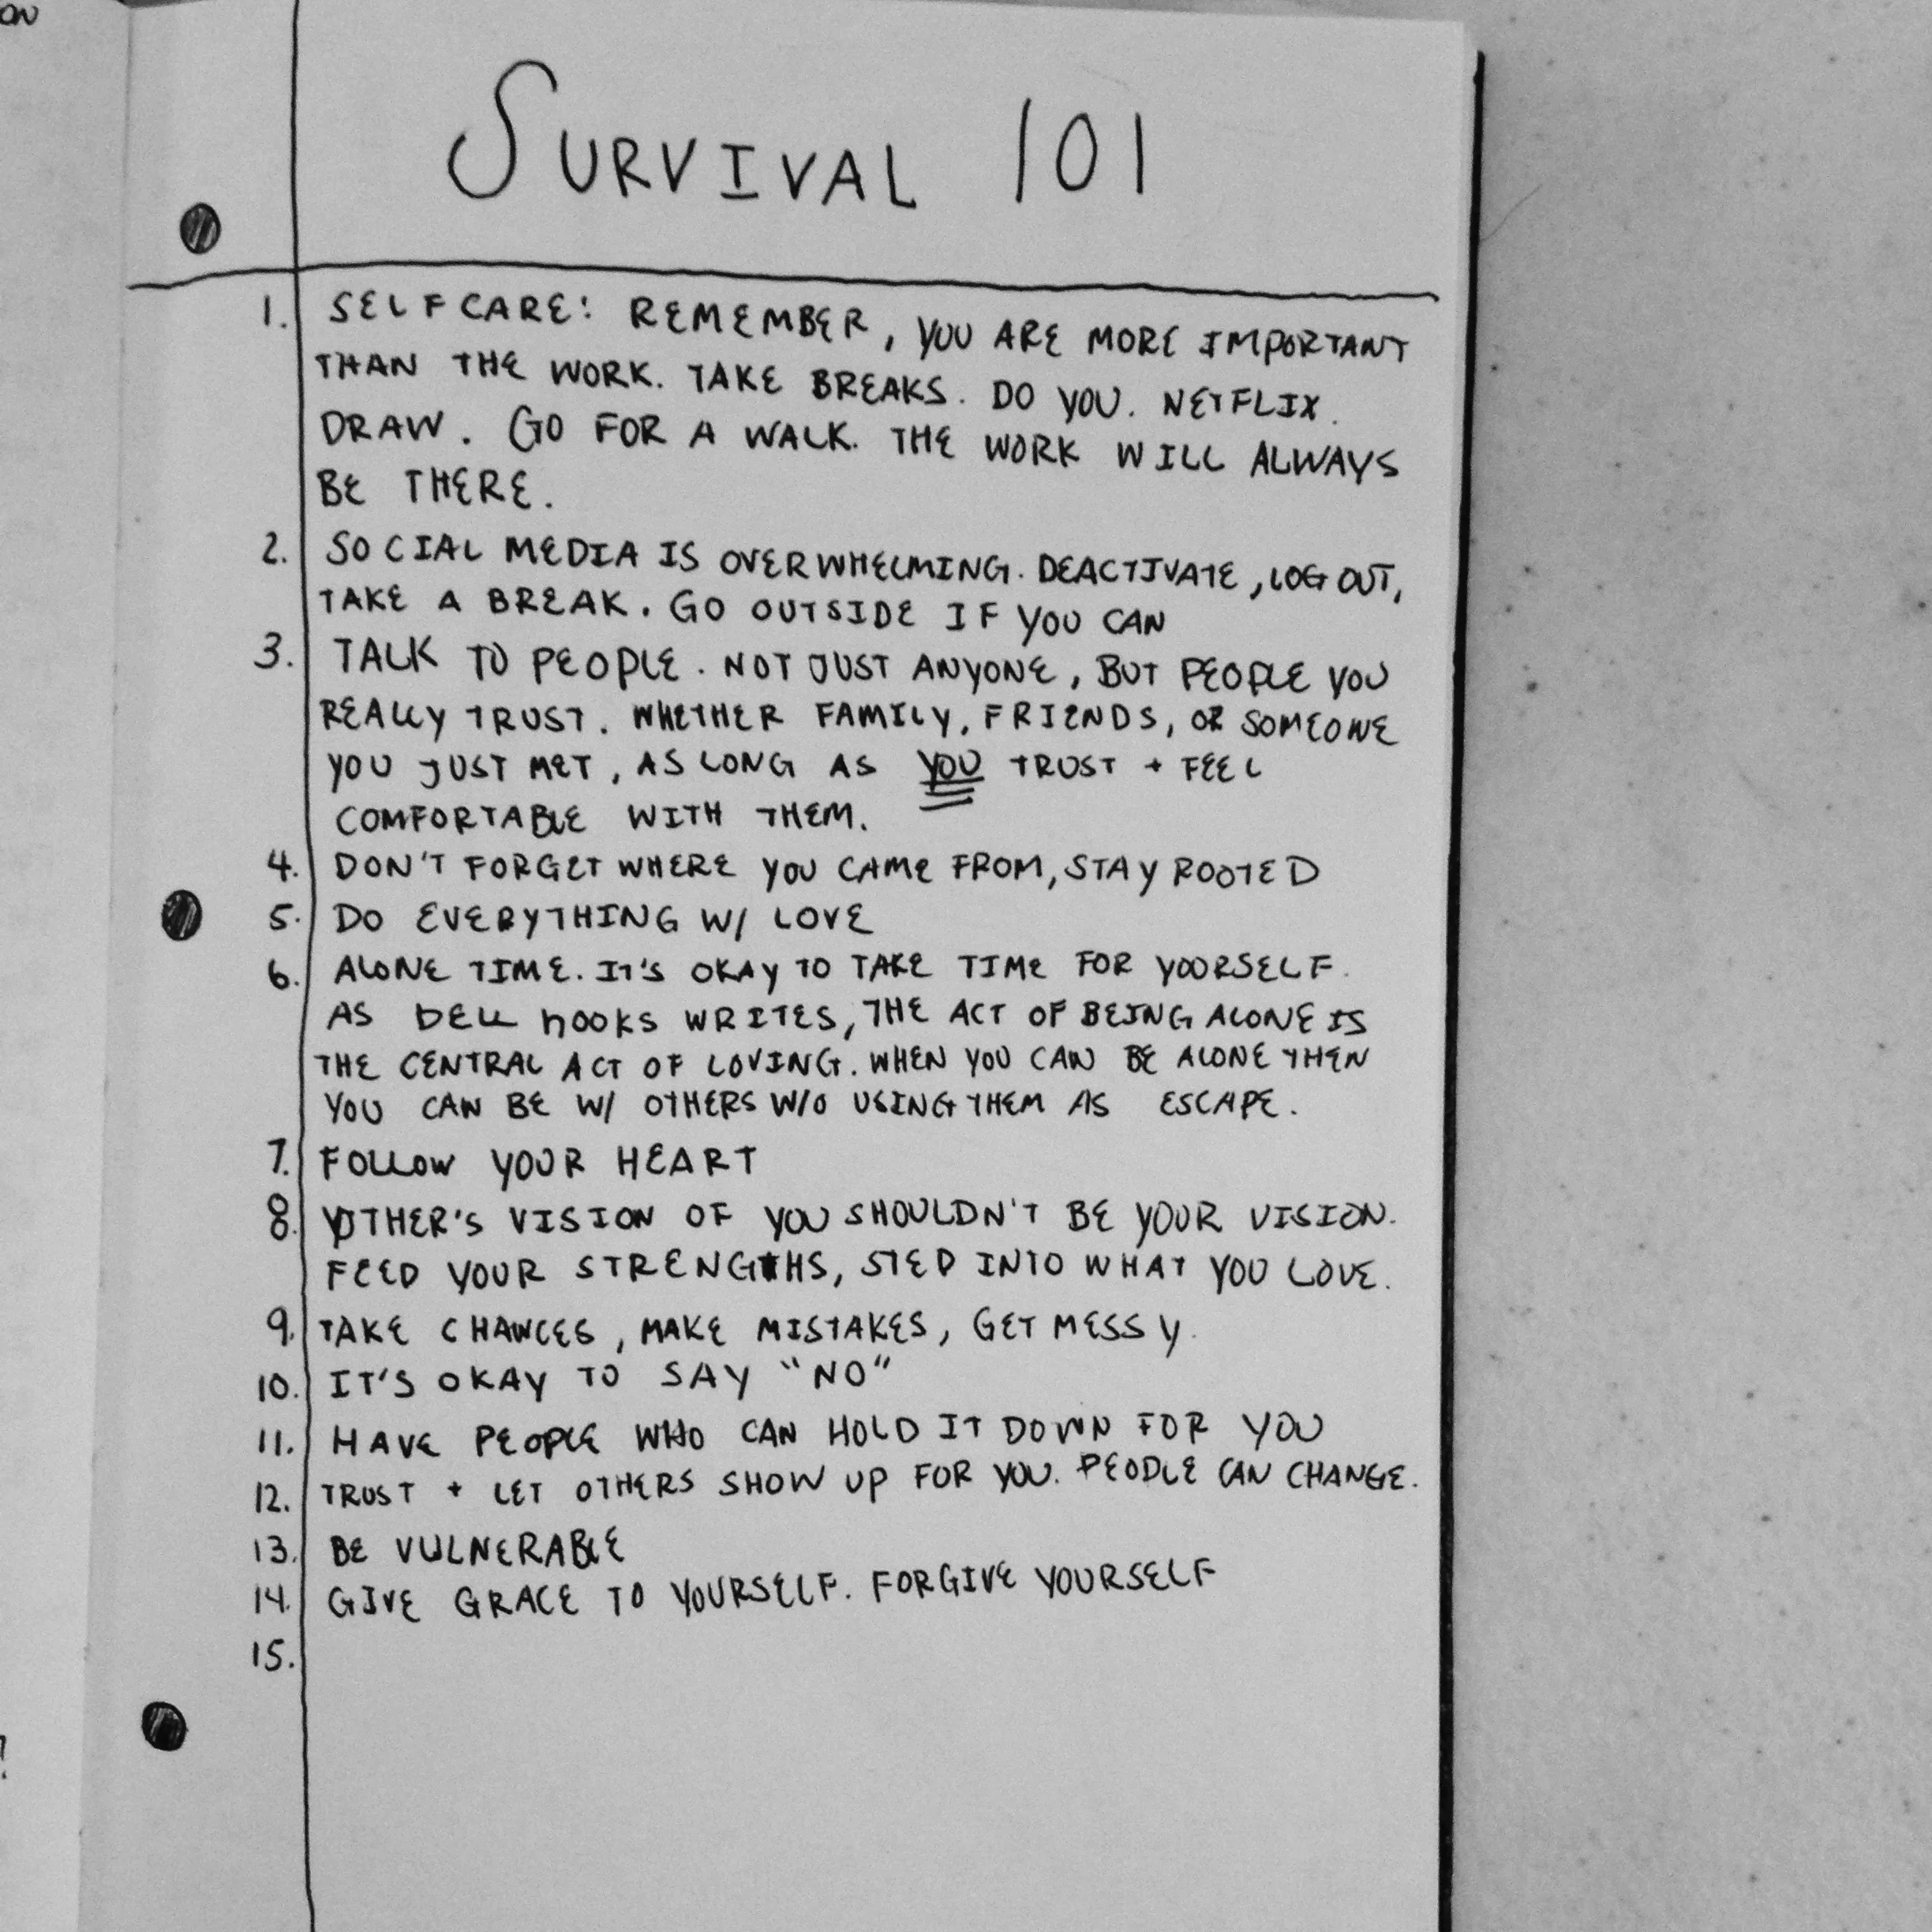 ON
SURVIVAL 101
1. SELF CARE: REMEMBER, YOU ARE MORE IMPORTANT
THAN THE WORK. TAKE BREAKS. DO YOU. NETFLIX.
DRAW. GO FOR A WALK. THE WORK WILL ALWAYS
BE THERE.
2. SOCIAL MEDIA IS OVERWHELMING. DEACTIVATE, LOG OUT,
TAKE A BREAK. GO OUTSIDE IF YOU CAN
3. TALK TO PEOPLE. NOT JUST ANYONE, BUT PEOPLE YOU
REALLY TRUST. WHETHER FAMILY, FRIENDS, OR SOMEONE
YOU JUST MET, AS LONG AS YOU TRUST + FEEL
COMFORTABLE WITH THEM.
4. DON'T FORGET WHERE YOU CAME FROM, STAY ROOTED
5. DO EVERYTHING W/ LOVE
6. ALONE TIME. IT'S OKAY TO TAKE TIME FOR YOURSELF.
AS bELL hOOKS WRITES, THE ACT OF BEING ALONE IS
THE CENTRAL ACT OF LOVING. WHEN YOU CAN BE ALONE THEN
YOU CAN BE W/ OTHERS W/O USING THEM AS ESCAPE.
7. FOLLOW YOUR HEART
8. OTHER'S VISION OF YOU SHOULDN'T BE YOUR VISION.
FEED YOUR STRENGTHS, STEP INTO WHAT YOU LOVE.
9. TAKE CHANCES, MAKE MISTAKES, GET MESSY.
10. IT'S OKAY TO SAY "NO"
11. HAVE PEOPLE WHO CAN HOLD IT DOWN FOR YOU
12. TRUST + LET OTHERS SHOW UP FOR YOU. PEOPLE CAN CHANGE.
13. BE VULNERABLE
14. GIVE GRACE TO YOURSELF. FORGIVE YOURSELF
15.